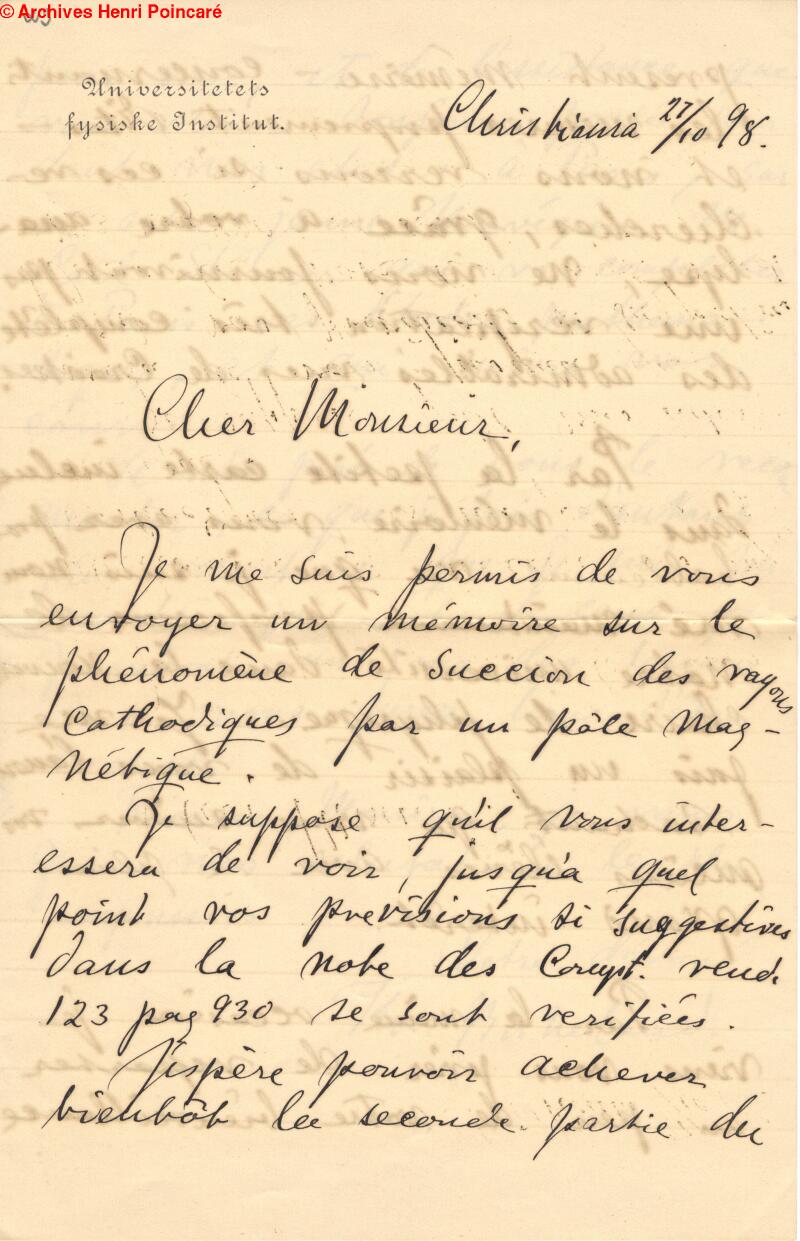 © Archives Henri Poincaré
Universitetets
fysiske Institut.
Christiania 27/10 98.
Cher Monsieur,
Je me suis permis de vous
envoyer un mémoire sur le
phénomène de succion des rayons
cathodiques par un pôle mag-
nétique.
Je suppose qu'il vous inter-
essera de voir, jusqu'a quel
point vos prévisions si suggestives
dans la note des Compt. rend.
123 pag 930 se sont verifiées.
J'espère pouvoir achever
bientôt la seconde partie du